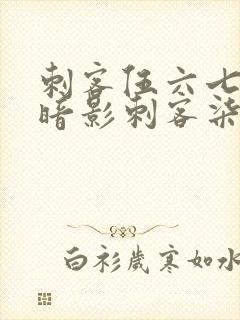 刺客伍六七
暗影刺客柒
白衫歲寒如水